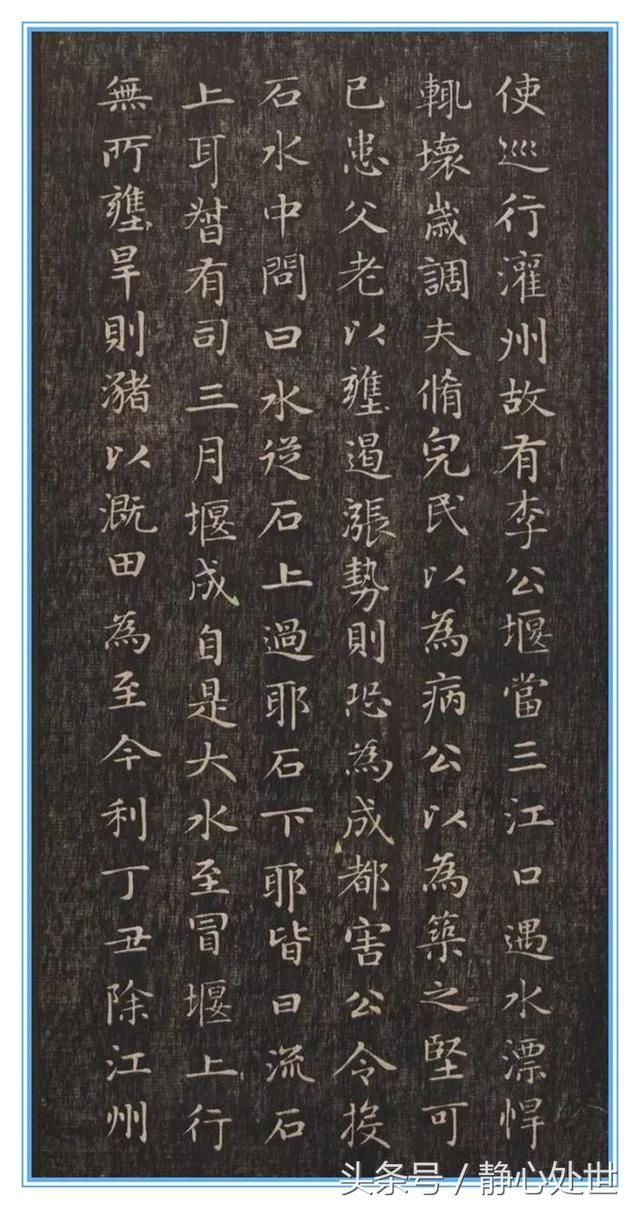 使巡行灌州故有李公堰當三江口遇水漂悍
輒壞歲調夫脩完民以為病公以為築之堅可
已患父老以壅遏漲勢則恐為成都害公令投
石水中問曰水從石上過耶石下耶皆曰流石
上耳督有司三月堰成自是大水至冒堰上行
無所壅旱則瀦以溉田為至今利丁丑除江州
头条号 / 静心处世